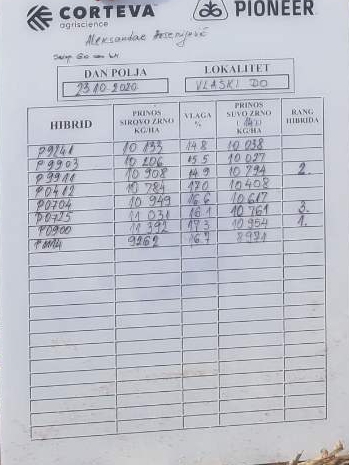 CORTEVA agriscience PIONEER
Aleksandar
DAN POLJA LOKALITET
23 10 2020 VLAŠKI DO
HIBRID PRINOS SIROVO ZRNO KG/HA VLAGA % PRINOS SUVO ZRNO KG/HA RANG HIBRIDA
P9241 10 133 14.8 10 038
P9903 10 206 15.5 10 027
P9911 10 908 14.9 10 794 2.
P0412 10 784 17.0 10 408
P0704 10 949 16.6 10 617
P0725 11 031 16.1 10 761 3.
P0900 11 392 17.3 10 954 1.
9262 16.7